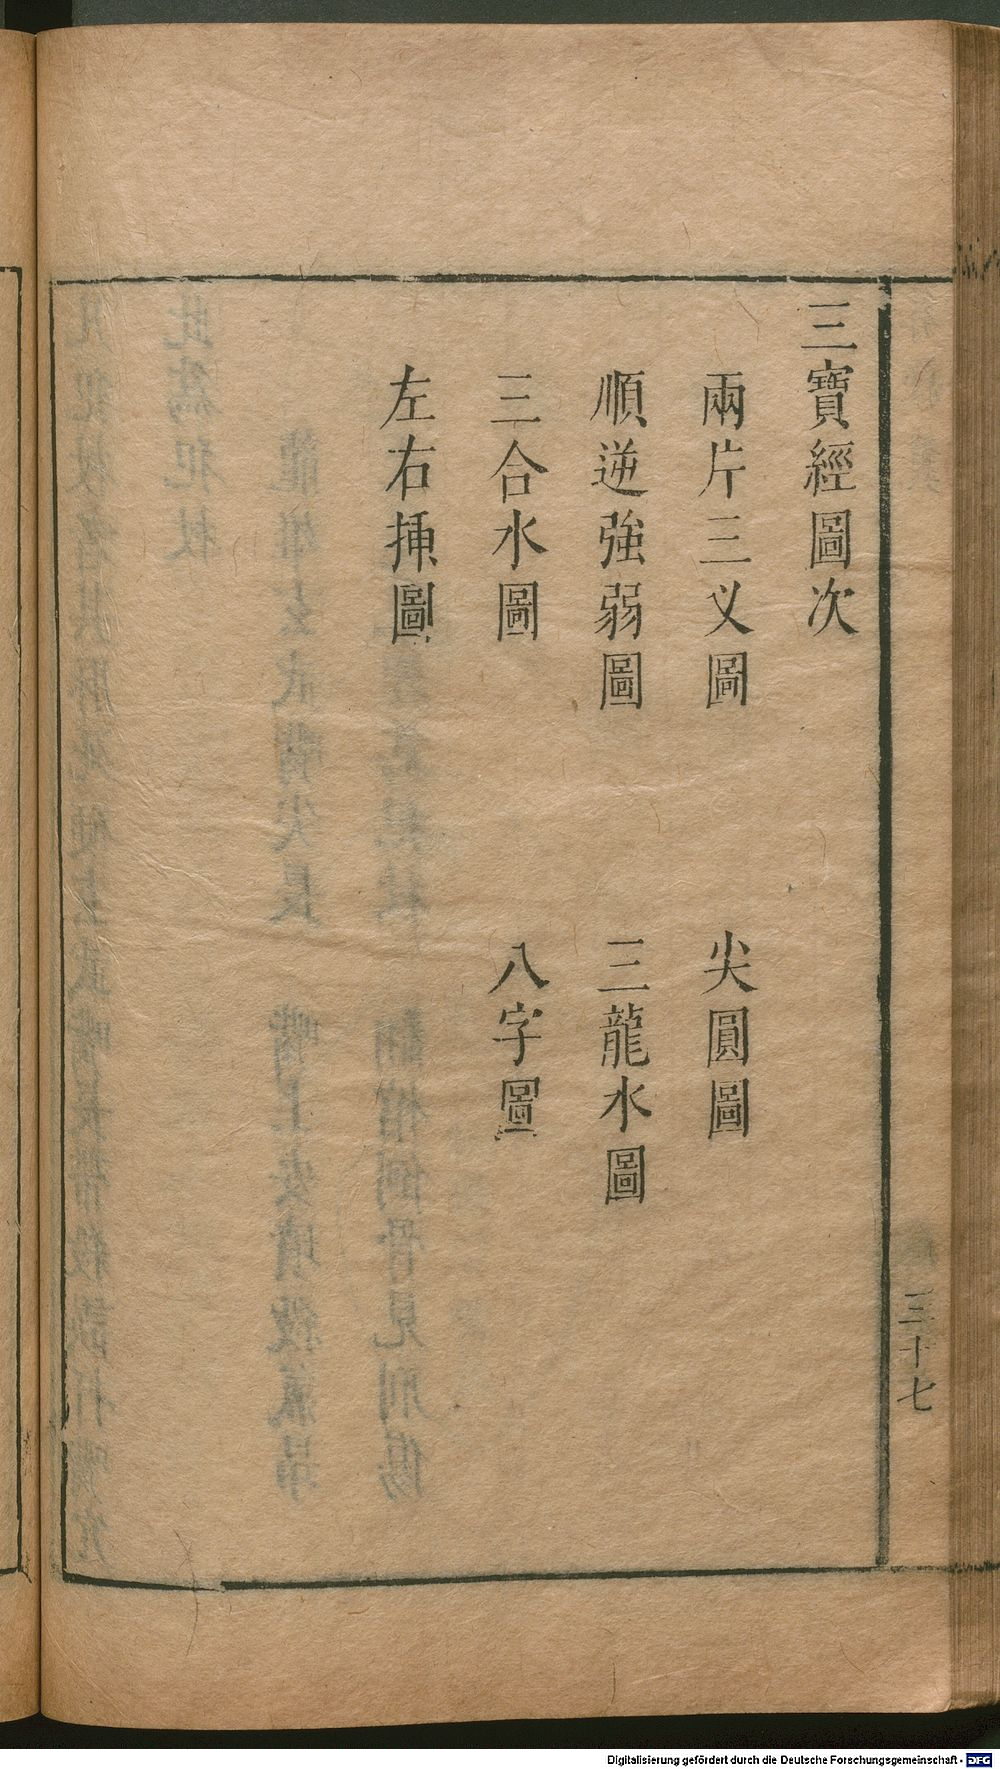 三寶經圖次
兩片三义圖
尖圓圖
順逆強弱圖
三龍水圖
三合水圖
八字圖
左右揷圖
三十七
Digitalisierung gefördert durch die Deutsche Forschungsgemeinschaft - DFG